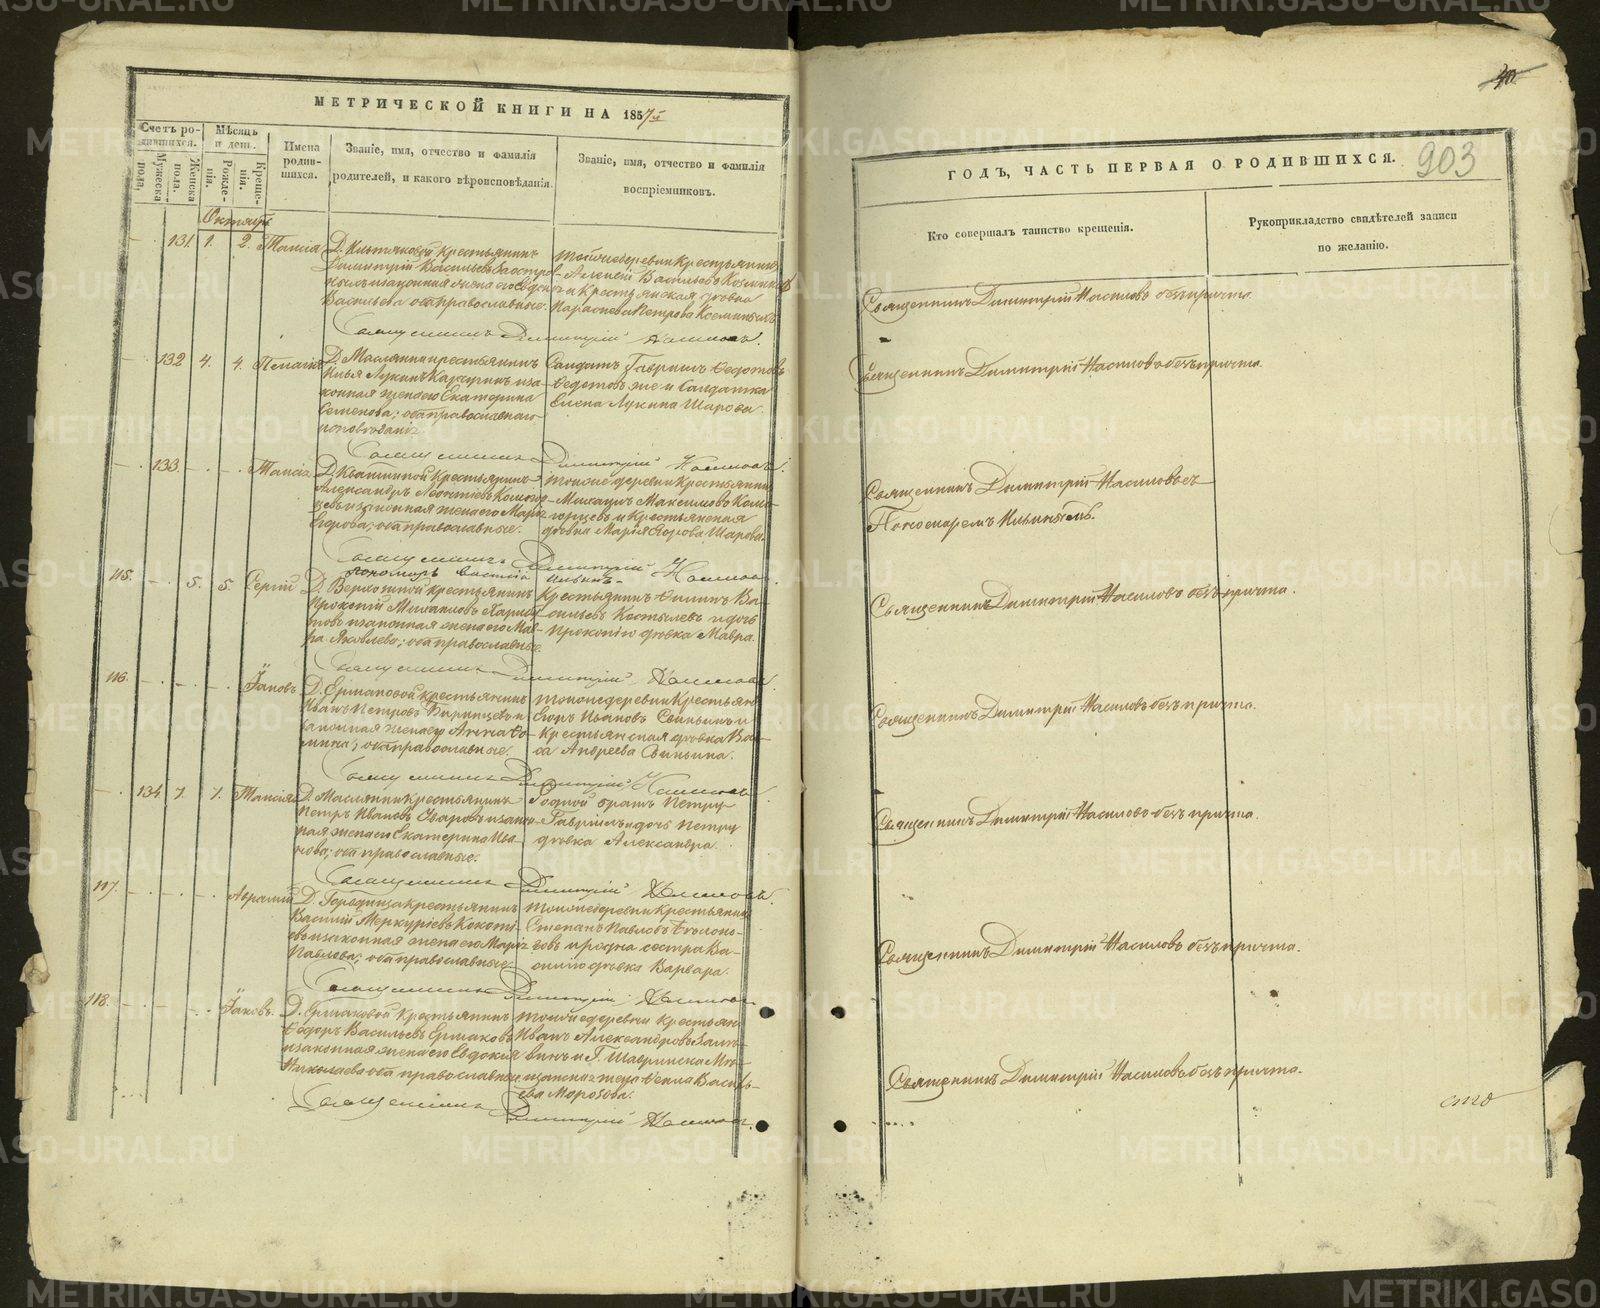 МЕТРИЧЕСКОЙ КНИГИ НА 1857й
Счетъ ро-
дившихся.
Мужеска
пола.
Женска
пола.
Мѣсяцъ
и день.
Рожде-
нія.
Креще-
нія.
Имена
родив-
шихся.
Званіе, имя, отчество и фамилія
родителей, и какого вѣроисповѣданія.
Званіе, имя, отчество и фамилія
воспріемниковъ.
Октябрь
131. 1. 2. Таисія
крестьянинъ
Димитрій Васильевъ
законная жена его Евдокія
Васильева оба православные.
тойже деревни крестьянинъ
Алексѣй Васильевъ
и крестьянская дѣвка
Петрова
Священникъ Димитрій Насиловъ.
132 4. 4. Пелагія
Д. Маслянки крестьянинъ
Илья Лукинъ и за-
конная жена его Екатерина
Семенова; оба православнаго
исповѣданія
Солдатъ Гавріилъ Ѳедотовъ
Ѳедотовъ же и Солдатка
Елена Лукина Шарова.
Священникъ Димитрій Насиловъ.
133. Таисія
крестьянинъ
Александръ Леонтіевъ Комого-
рцевъ и законная жена его Марія
Егорова; оба православные.
тойже деревни крестьянинъ
Михаилъ Максимовъ Комо-
горцевъ и крестьянская
дѣвка Марія Егорова Шарова.
Священникъ Димитрій Насиловъ.
Пономарь Василій Ильинъ
115. 5. 5. Сергій
крестьянинъ
Прокопій Михайловъ
и законная жена его Мав-
ра Яковлева; оба православные.
Крестьянинъ Филипъ Ва-
сильевъ Костылевъ и дочь
Прокопію дѣвка Мавра.
Священникъ Димитрій Насиловъ.
116. Іаковъ
Д. Ермаковой крестьянинъ
Иванъ Петровъ и
законная жена его Анна Ѳо-
мина; оба православные.
тойже деревни крестьяне
Егоръ Ивановъ Свиньинъ и
крестьянская дѣвка Ва-
са Андреева Свиньина.
Священникъ Димитрій Насиловъ.
134 7. 7. Таисія
Д. Маслянки крестьянинъ
Петръ Ивановъ Уваровъ и закон-
ная жена его Екатерина Ива-
нова; оба православные.
Родной братъ Петру
Гавріилъ и дочь Петру
дѣвка Александра.
Священникъ Димитрій Насиловъ.
117. Аврамій
Д. Городища крестьянинъ
Василій Меркуріевъ
и законная жена его Марія
Павлова; оба православные
тойже деревни крестьянинъ
Степанъ Павловъ
и родна сестра Ва-
силію дѣвка Варвара.
Священникъ Димитрій Насиловъ
118. Іаковъ.
Д. Ермаковой крестьянинъ
Ѳедоръ Васильевъ Ермаковъ
и законная жена его Евдокія
Николаева оба православные
тойже деревни крестьян.
Иванъ Александровъ
и Г. Шадринска Мѣ-
щанская жена Ѳекла Василь-
ева Морозова.
Священникъ Димитрій Насиловъ.
903
ГОДЪ, ЧАСТЬ ПЕРВАЯ О РОДИВШИХСЯ.
Кто совершалъ таинство крещенія.
Рукоприкладство свидѣтелей записи
по желанію.
Священникъ Димитрій Насиловъ безъ причта.
Священникъ Димитрій Насиловъ безъ причта.
Священникъ Димитрій Насиловъ съ
Пономаремъ Ильинымъ.
Священникъ Димитрій Насиловъ безъ причта.
Священникъ Димитрій Насиловъ безъ причта.
Священникъ Димитрій Насиловъ безъ причта.
Священникъ Димитрій Насиловъ безъ причта.
Священникъ Димитрій Насиловъ безъ причта.
сто
METRIKI.GASO-URAL.RU